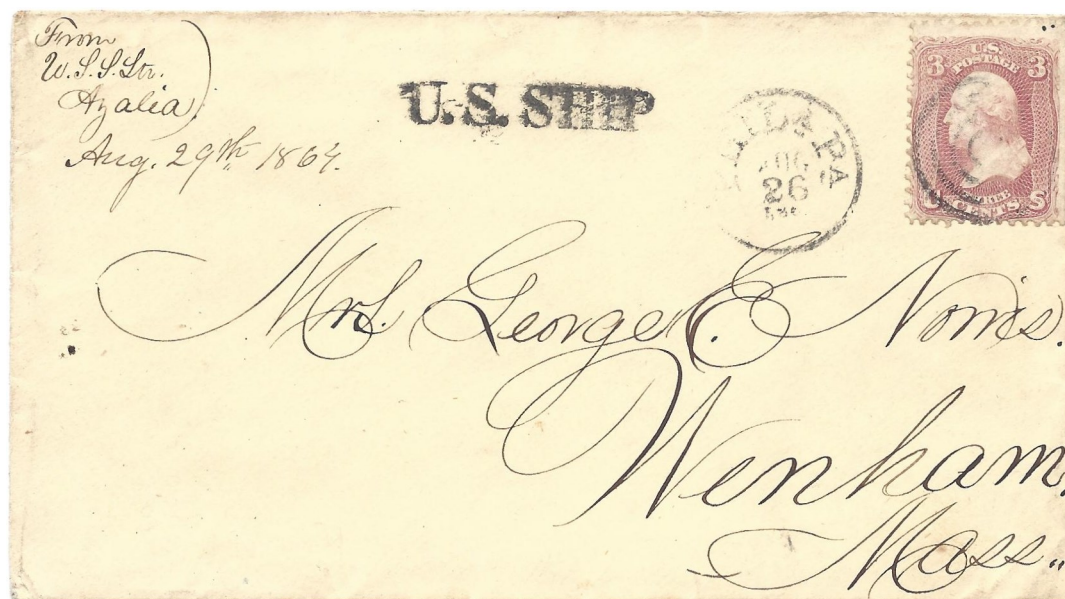 From
U.S.S.Str.
Azalia
Aug. 29th 1864.
U.S. SHIP
PA
AUG
26
3 U.S. 3
POSTAGE
U CENTS S
Mrs. George E. Norris.
Wenham,
Mass.